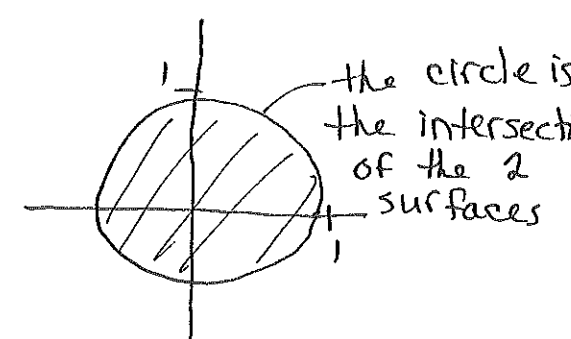 1
the circle is
the intersecti
of the 2
surfaces
1